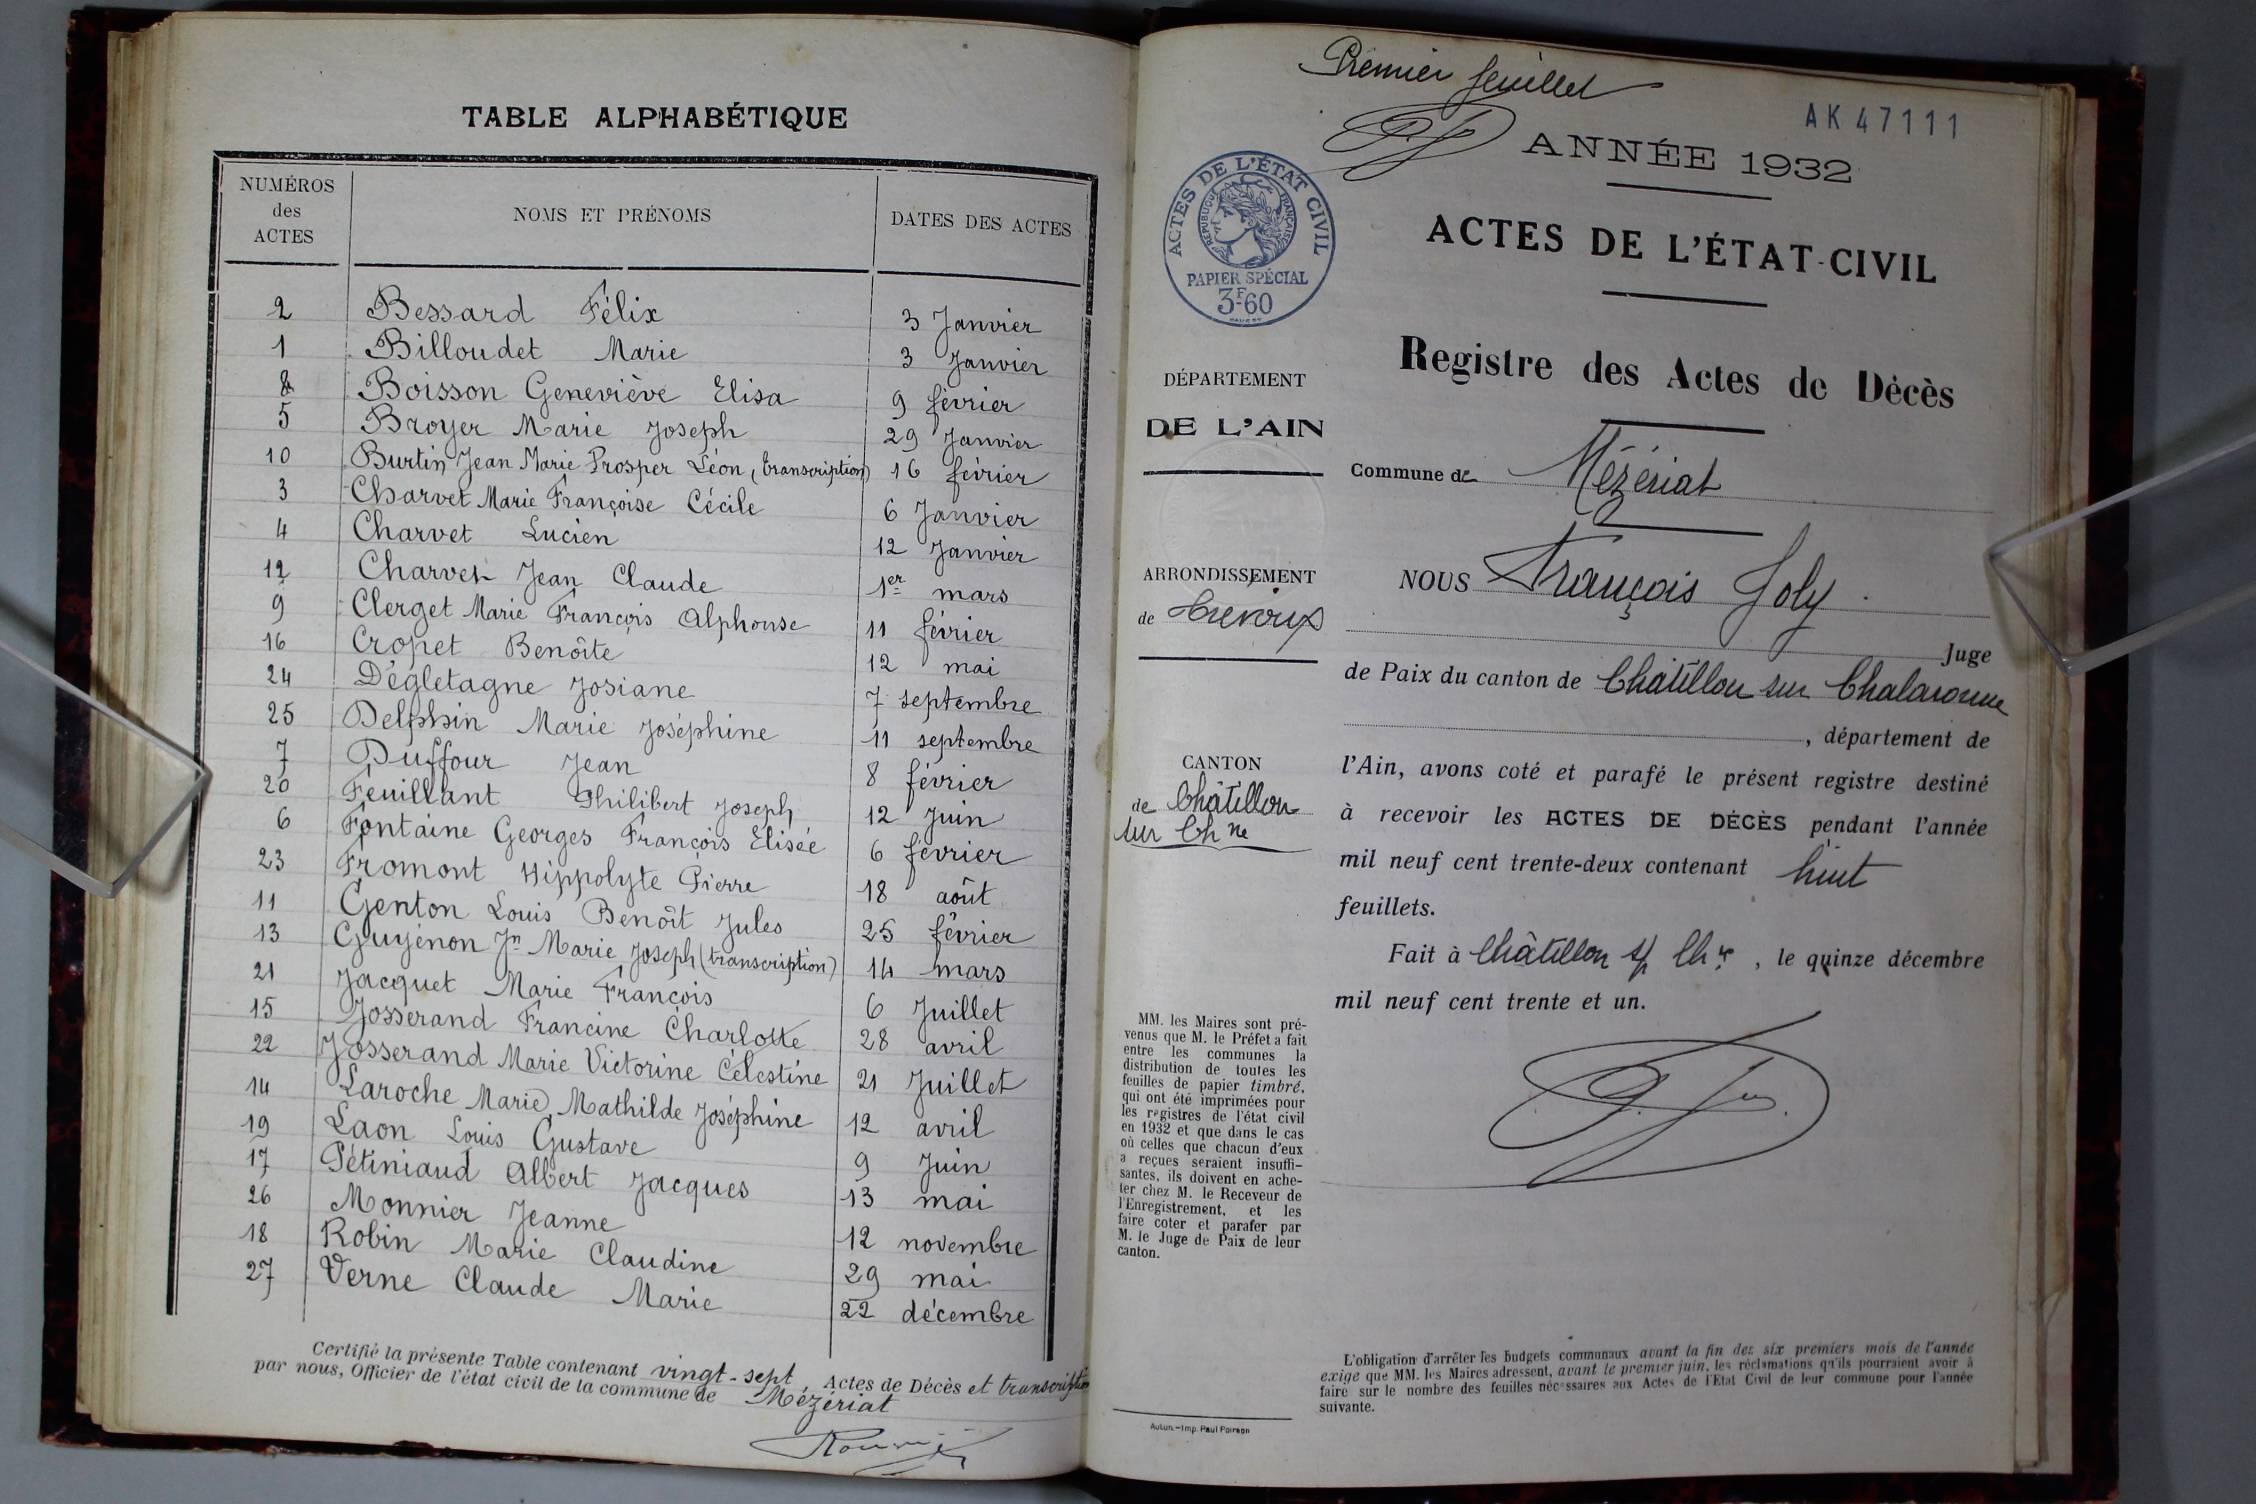 TABLE ALPHABÉTIQUE
NUMÉROS des ACTES
NOMS ET PRÉNOMS
DATES DES ACTES
2 Bessard Félix 3 Janvier
1 Billoudet Marie 3 Janvier
8 Boisson Geneviève Elisa 9 février
5 Broyer Marie Joseph 29 Janvier
10 Burtin Jean Marie Prosper Léon, (transcription) 16 février
3 Charvet Marie Françoise Cécile 6 Janvier
4 Charvet Lucien 12 Janvier
12 Charvet Jean Claude 1er mars
9 Clerget Marie François Alphonse 11 février
16 Cropet Benoîte 12 mai
24 Dégletagne Josiane 7 septembre
25 Delphin Marie Joséphine 11 septembre
7 Duffour Jean 8 février
20 Feuillant Philibert Joseph 12 Juin
6 Fontaine Georges François Elisée 6 février
23 Fromont Hippolyte Pierre 18 août
11 Genton Louis Benoît Jules 25 février
13 Guyénon Jn Marie Joseph (transcription) 14 mars
21 Jacquet Marie François 6 Juillet
15 Josserand Francine Charlotte 28 avril
22 Josserand Marie Victorine Célestine 21 Juillet
14 Laroche Marie Mathilde Joséphine 12 avril
19 Laon Louis Gustave 9 Juin
17 Pétiniaud Albert Jacques 13 mai
26 Monnier Jeanne 12 novembre
18 Robin Marie Claudine 29 mai
27 Verne Claude Marie 22 décembre
Certifié la présente Table contenant vingt-sept Actes de Décès et transcription
par nous, Officier de l'état civil de la commune de Mézériat
Premier feuillet
AK 47111
ANNÉE 1932
ACTES DE L'ÉTAT CIVIL
RÉPUBLIQUE FRANÇAISE
PAPIER SPÉCIAL
3F60
ACTES DE L'ÉTAT-CIVIL
Registre des Actes de Décès
DÉPARTEMENT
DE L'AIN
Commune de Mézériat
ARRONDISSEMENT
de Trévoux
NOUS François Joly
Juge
de Paix du canton de Châtillon sur Chalaronne
, département de
l'Ain, avons coté et parafé le présent registre destiné
à recevoir les ACTES DE DÉCÈS pendant l'année
mil neuf cent trente-deux contenant huit
feuillets.
Fait à Châtillon s/ Chne, le quinze décembre
mil neuf cent trente et un.
CANTON
de Châtillon
sur Chne
MM. les Maires sont pré-
venus que M. le Préfet a fait
entre les communes la
distribution de toutes les
feuilles de papier timbré,
qui ont été imprimées pour
les registres de l'état civil
en 1932 et que dans le cas
où celles que chacun d'eux
a reçues seraient insuffi-
santes, ils doivent en ache-
ter chez M. le Receveur de
l'Enregistrement, et les
faire coter et parafer par
M. le Juge de Paix de leur
canton.
L'obligation d'arrêter les budgets communaux avant la fin des six premiers mois de l'année
exige que MM. les Maires adressent, avant le premier juin, les réclamations qu'ils pourraient avoir à
faire sur le nombre des feuilles nécessaires aux Actes de l'Etat Civil de leur commune pour l'année
suivante.
Autun.-Imp. Paul Poirson